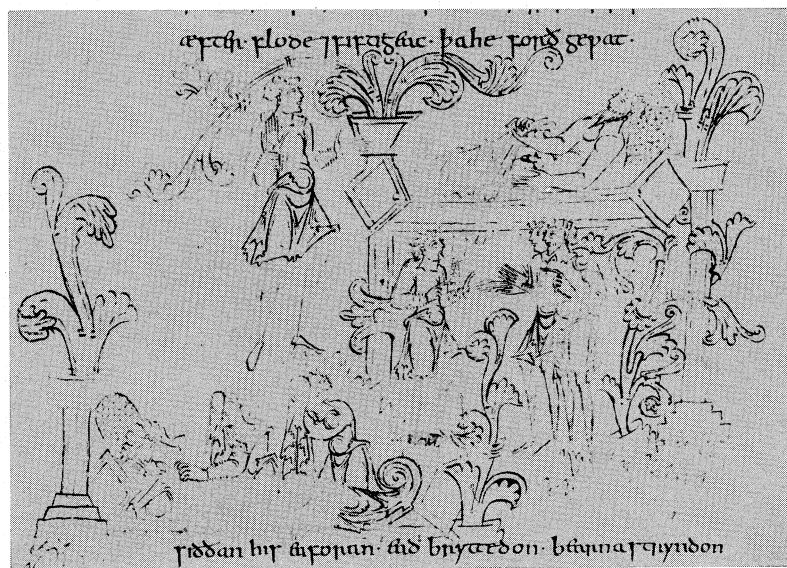 æfter· flode ⁊fiftig eac· þahe forð geƿat·
siððan his eaforan· ead bryttedon· bearna stryndon